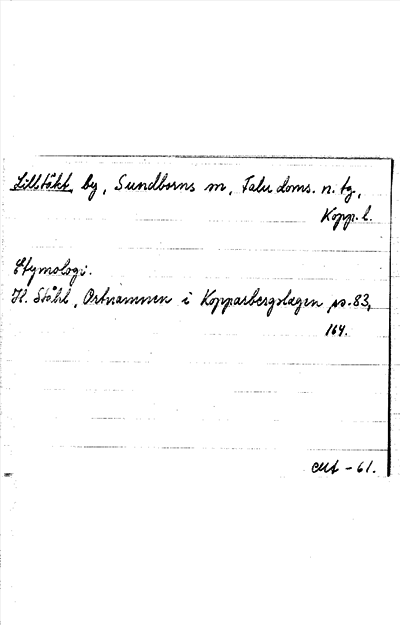 Lilltäkt, by, Sundborns sn, Falu doms. n. tg,
Kopp. l.
Etymologi.
H. Ståhl, Ortnamnen i Kopparbergslagen ss. 83,
164.
-61.